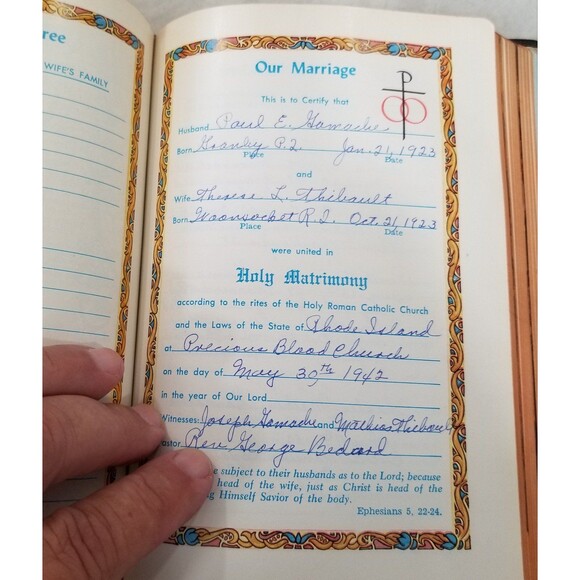 ree
WIFE'S FAMILY
Our Marriage
This is to Certify that
Husband Paul E. Gamache
Born Granby P.Q. Jan. 21, 1923
Place Date
and
Wife Therese L. Thibault
Born Woonsocket R.I. Oct. 21, 1923
Place Date
were united in
Holy Matrimony
according to the rites of the Holy Roman Catholic Church
and the Laws of the State of Rhode Island
at Precious Blood Church
on the day of May 30th 1942
in the year of Our Lord
Witnesses: Joseph Gamache and Mathias Thibault
Pastor Rev. George Bedard
be subject to their husbands as to the Lord; because
head of the wife, just as Christ is head of the
ng Himself Savior of the body.
Ephesians 5, 22-24.